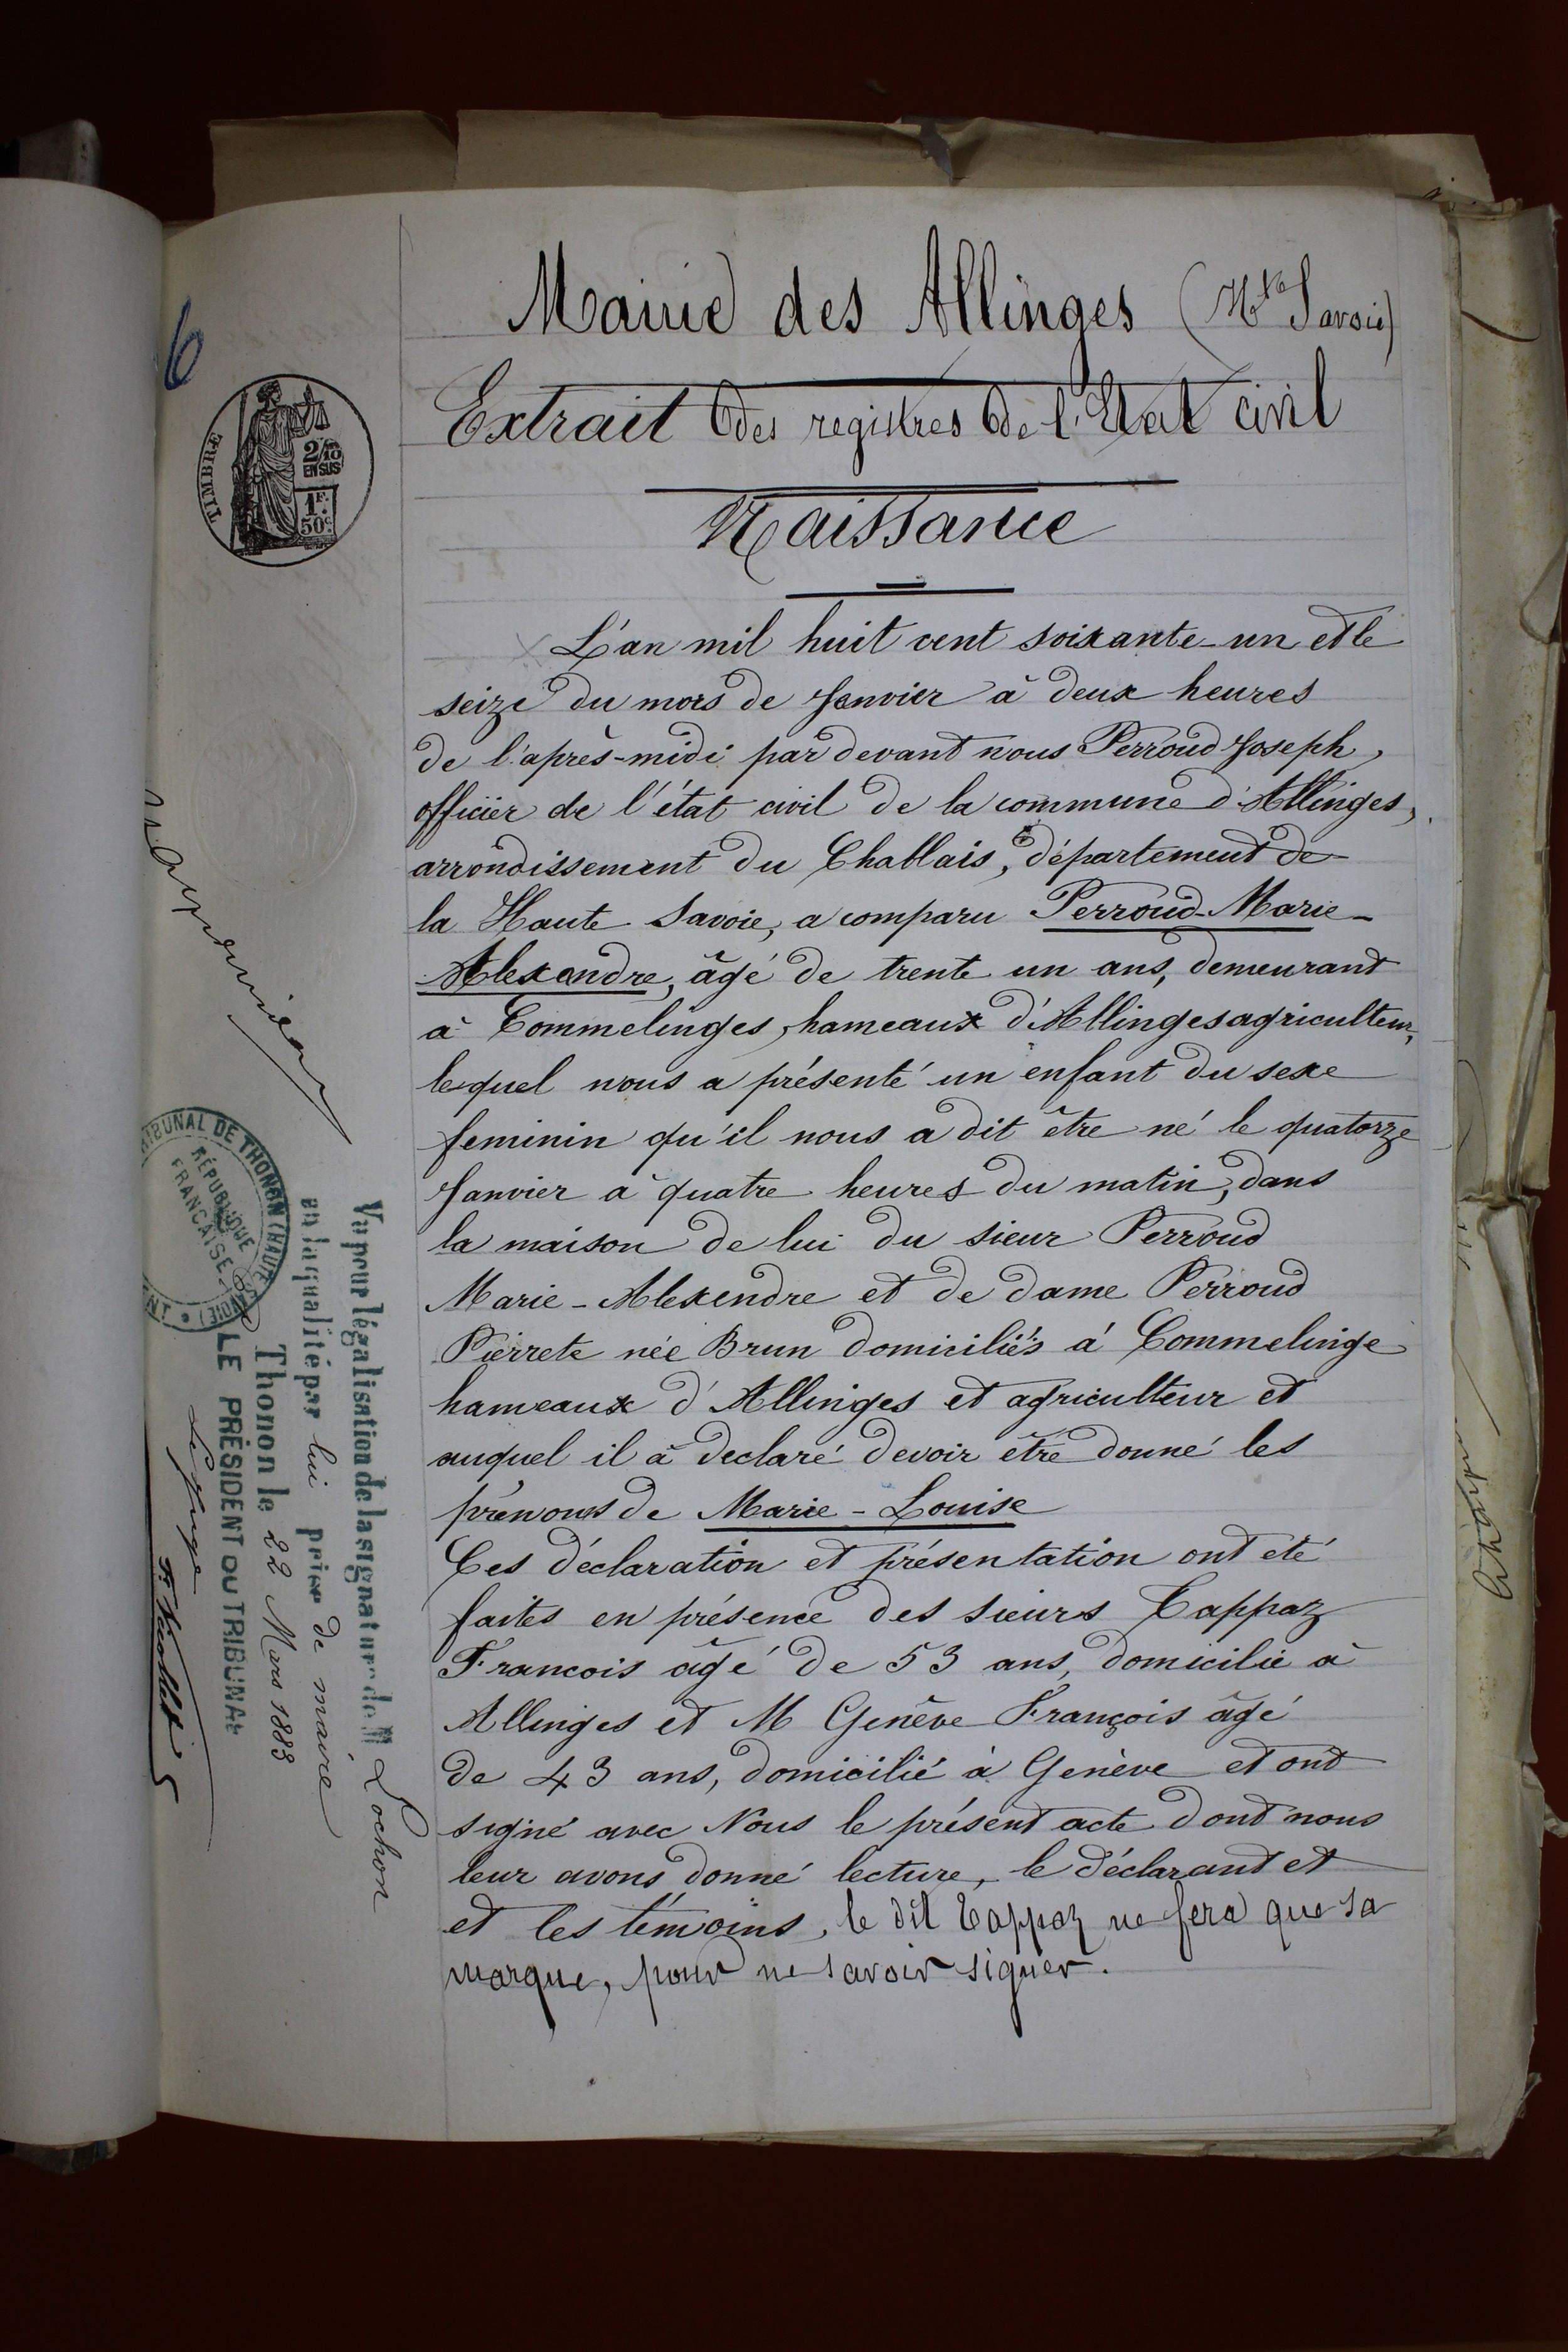 Mairie des Allinges (Hte Savoie)
Extrait des registres de l'Etat civil
Naissance
L'an mil huit cent soixante-un et le
seize du mois de Janvier à deux heures
de l'après-midi par devant nous Perroud Joseph,
officier de l'état civil de la commune d'Allinges,
arrondissement du Chablais, département de
la Haute Savoie, a comparu Perroud-Marie-
Alexandre, âgé de trente un ans, demeurant
à Commelinges, hameaux d'Allinges agriculteur,
lequel nous a présenté un enfant du sexe
feminin qu'il nous a dit être né le quatorze
Janvier à quatre heures du matin, dans
la maison de lui du sieur Perroud
Marie-Alexendre et de dame Perroud
Pierrete née Brun domiciliés à Commelinge
hameaux d'Allinges et agriculteur et
auquel il à declaré devoir être donné les
prénoms de Marie-Louise
Ces déclaration et présentation ont eté
faites en présence des sieurs Cappaz
Francois âgé de 53 ans, domicilié à
Allinges et M Genève François âgé
de 43 ans, domicilié à Genève et ont
signé avec Nous le présent acte dont nous
leur avons donné lecture, le déclarant et
et les témoins, le dit Cappaz ne fera que sa
marque, pour ne savoir signer.
6
TIMBRE
2/10
EN SUS
1F.
50c.
TRIBUNAL DE THONON (HAUTE SAVOIE)
RÉPUBLIQUE
FRANÇAISE
Vu pour légalisation de la signature de M Lochon
en la qualité par lui prise de maire
Thonon le 22 Mars 1883
LE PRÉSIDENT DU TRIBUNAL
Le Juge